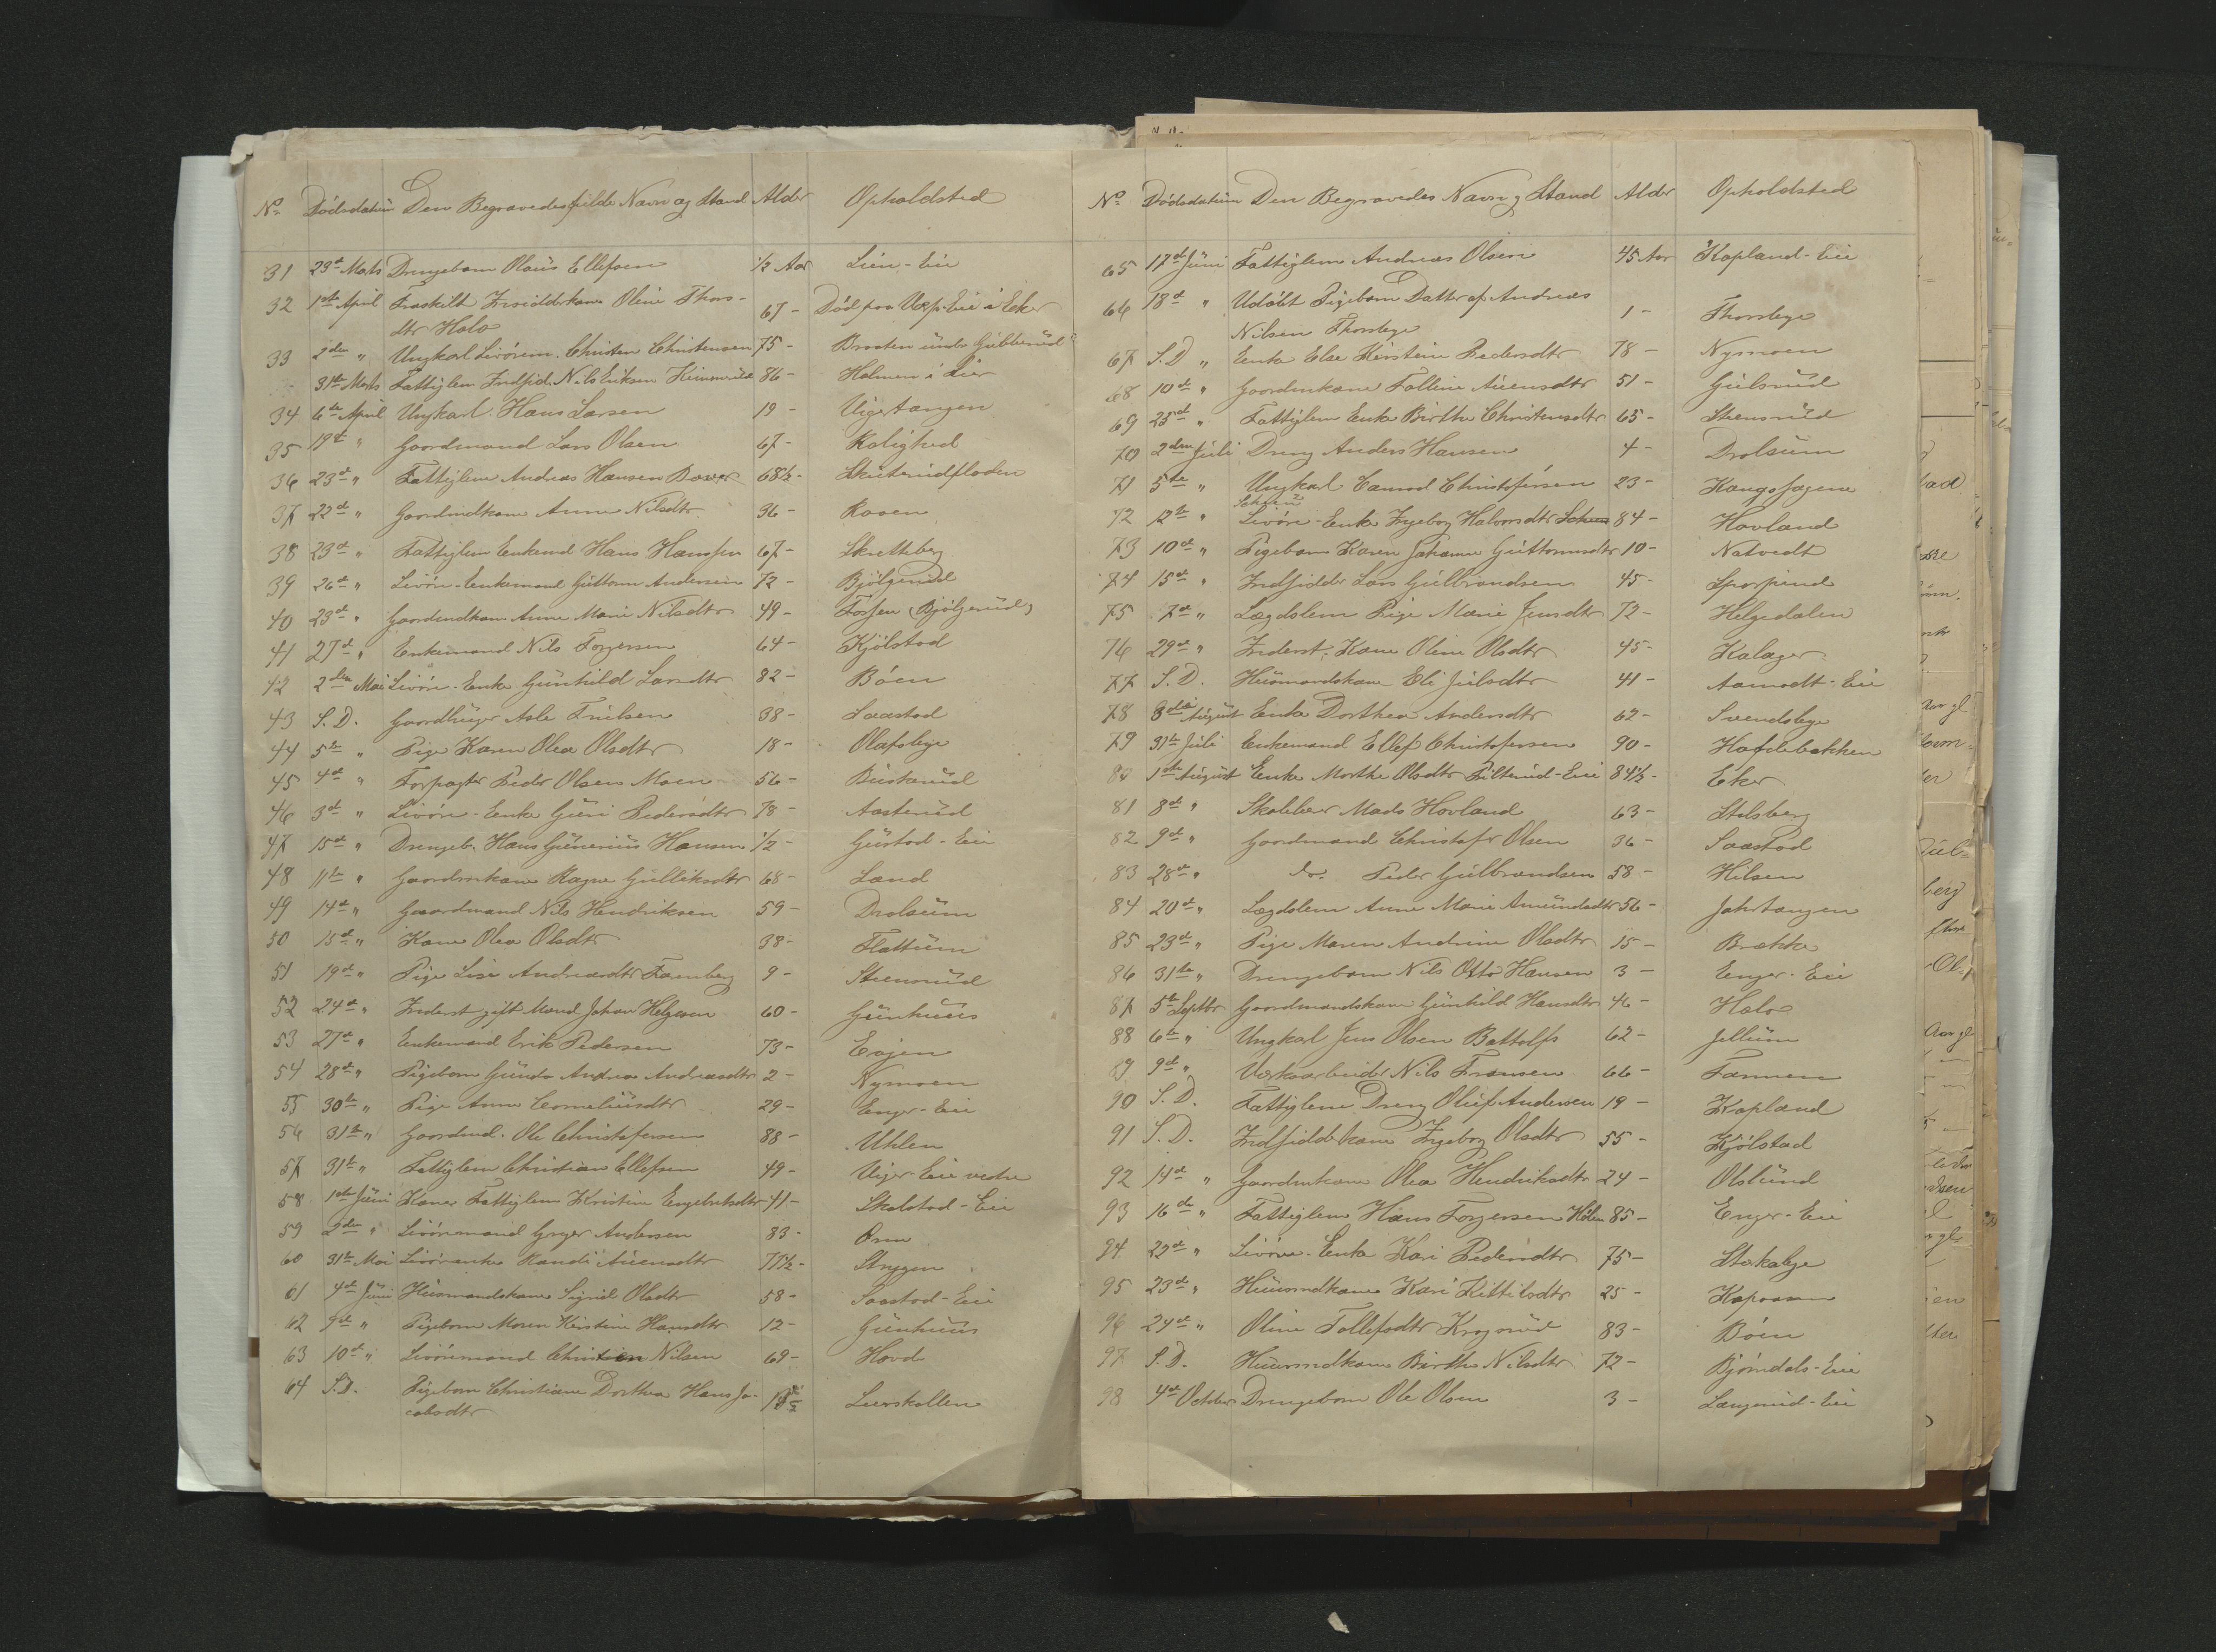 No Dødsdatum Den Begravedes fulde Navn og Stand Alder Opholdsted
31 29de Marts Drengebarn Olaus Ellefsen ½ Aar Lien-Eie
32 1ste April Fraskilt Indsidderkone Oline Thors- 67 - Død paa Eie i Eker
dtr Halo
33 2den " Ungkarl Livørem. Christen Christensen 75 - Braaten under Gubberud
31te Marts Fattiglem Indsid. Nils Eriksen 86 - Holmen i Lier
34 6te April Ungkarl Hans Larsen 19 - Uigertangen
35 19de " Gaardmand Lars Olsen 67 - Rolighed
36 23de " Fattiglem Andreas Hansen 68½ - Skuterudfloden
37 22de " Gaardmdkone Anne Nilsdtr 36 - Rooen
38 23de " Fattiglem Enkemd Hans Hanssen 67 - Skretteberg
39 26de " Livøre-Enkemand Guttorm Andersen 72 - Bjölgerud
40 23de " Gaardmdkone Anne Marie Nilsdtr 49 - Fossen (Bjölgerud)
41 27de " Enkemand Nils Torgersen 64 - Kjölstad
42 2den Mai Livøre-Enke Gunhild Larsdtr 82 - Böen
43 S.D. Gaardbruger Asle Truelsen 38 - Saastad
44 5te " Pige Karen Olea Olsdtr 18 - Olafsbye
45 4de " Forpagter Peder Olsen Moen 56 - Buskerud
46 3de " Livøre-Enke Guri Pedersdtr 78 - Aasterud
47 15de " Drengeb. Hans Gunerius Hansen ½ - Gustad-Eie
48 11te " Gaardmkone Ragne Gulliksdtr 68 - Land
49 14de " Gaardmand Nils Hendriksen 59 - Drolsum
50 15de " Kone Olea Olsdtr 38 - Flattum
51 19de " Pige Lise Andreasdtr Farnberg 9 - Steensrud
52 24de " Inderst gift Mand Johan Helgesen 60 - Gunhuus
53 27de " Enkemand Erik Pedersen 73 - Evjen
54 28de " Pigebarn Gunda Andrea Andreasdtr 2 - Nymoen
55 30te " Pige Anne Corneliusdtr 29 - Enger-Eie
56 31te " Gaardmd. Ole Christofersen 88 - Uhlen
57 31te " Fattiglem Christian Ellefsen 49 - Uiger-Eie vestre
58 1ste Juni Kone Fattiglem Kristine Engebretsdtr 41 - Skalstad-Eie
59 2den " Livøremand Gryer Andersen 83 - Örne
60 31te Mai Livørenke Randi Auensdtr 77½ - Strygen
61 4de Juni Huusmandskone Sigrid Olsdtr 58 - Saastad-Eie
62 9de " Pigebarn Maren Kirstine Hansdtr 12 - Gunhuus
63 10de " Livøremand Christian Nilsen 69 - Hovd
64 S.D. Pigebarn Christiane Dorthea Hans Ja- Leerskallen
cobsdtr
No Dødsdatum Den Begravedes Navn og Stand Alder Opholdsted
65 17de Juni Fattiglem Andreas Olsen 45 Aar Kopland-Eie
66 18de " Udöbt Pigebarn Datter af Andreas 1 - Thorsbye
Nilsen Thorsbye
67 S.D. " Enke Else Kirstine Pedersdtr 78 - Nymoen
68 10de " Gaardmkone Tolline Auensdtr 51 - Gulsrud
69 25de " Fattiglem Enke Birthe Christensdtr 65 - Steensrud
70 2den Juli Dreng Anders Hansen 4 - Drolsum
71 5te " Ungkarl Conrad Christofersen 23 - Haugsfossen
72 12te " Livøre-Enke Ingeborg Halvorsdtr 84 - Hovland
73 10de " Pigebarn Karen Johanne Guttormsdtr 10 - Natvedt
74 15de " Indsidder Lars Gulbrandsen 45 - Sporpind
75 7de " Lægdslem Pige Marie Jensdtr 72 - Helgedalen
76 29de " Inderst. Kone Oline Olsdtr 45 - Kalager
77 S.D. Huusmandskone Eli Julsdtr 41 - Aamodt-Eie
78 3die August Enke Dorthea Andersdtr 62 - Svendsbye
79 31te Juli Enkemand Ellef Christofersen 90 - Hafdebakken
80 1ste August Enke Marthe Olsdtr Pilterud-Eie 84½ - Eker
81 8de " Skolelærer Mads Hovland 63 - Stilsberg
82 9de " Gaardmand Christofr Olsen 36 - Saastad
83 28de " do. Peder Gulbrandsen 58 - Hilsen
84 20de " Lægdslem Anne Marie Amundsdtr 56 - Jahrtangen
85 23de " Pige Maren Andrine Olsdtr 15 - Brække
86 31te " Drengebarn Nils Otto Hansen 3 - Enger-Eie
87 5te Septbr Gaardmandskone Gunhild Hansdtr 46 - Halo
88 6te " Ungkarl Jens Olsen Battolfs 62 - Jellum
89 9de " Værksarbeider Nils Fransen 66 - Tannum
90 S.D. Fattiglem Dreng Oluf Andersen 19 - Kopland
91 S.D. Indsidderkone Ingeborg Olsdtr 55 - Kjölstad
92 14de " Gaardmkone Olea Hendriksdtr 24 - Olslund
93 16de " Fattiglem Hans Torgersen Holm 85 - Enger-Eie
94 22de " Livøre-Enke Kari Pedersdtr 75 - Stokabye
95 23de " Huusmdkone Kari Kittilsdtr 25 - Kopaasen
96 24de " Oline Tollefsdtr Krogsrud 83 - Böen
97 S.D. Huusmdkone Birthe Nilsdtr 72 - Bjørndals-Eie
98 4de October Drengebarn Ole Olsen 3 - Langerud-Eie